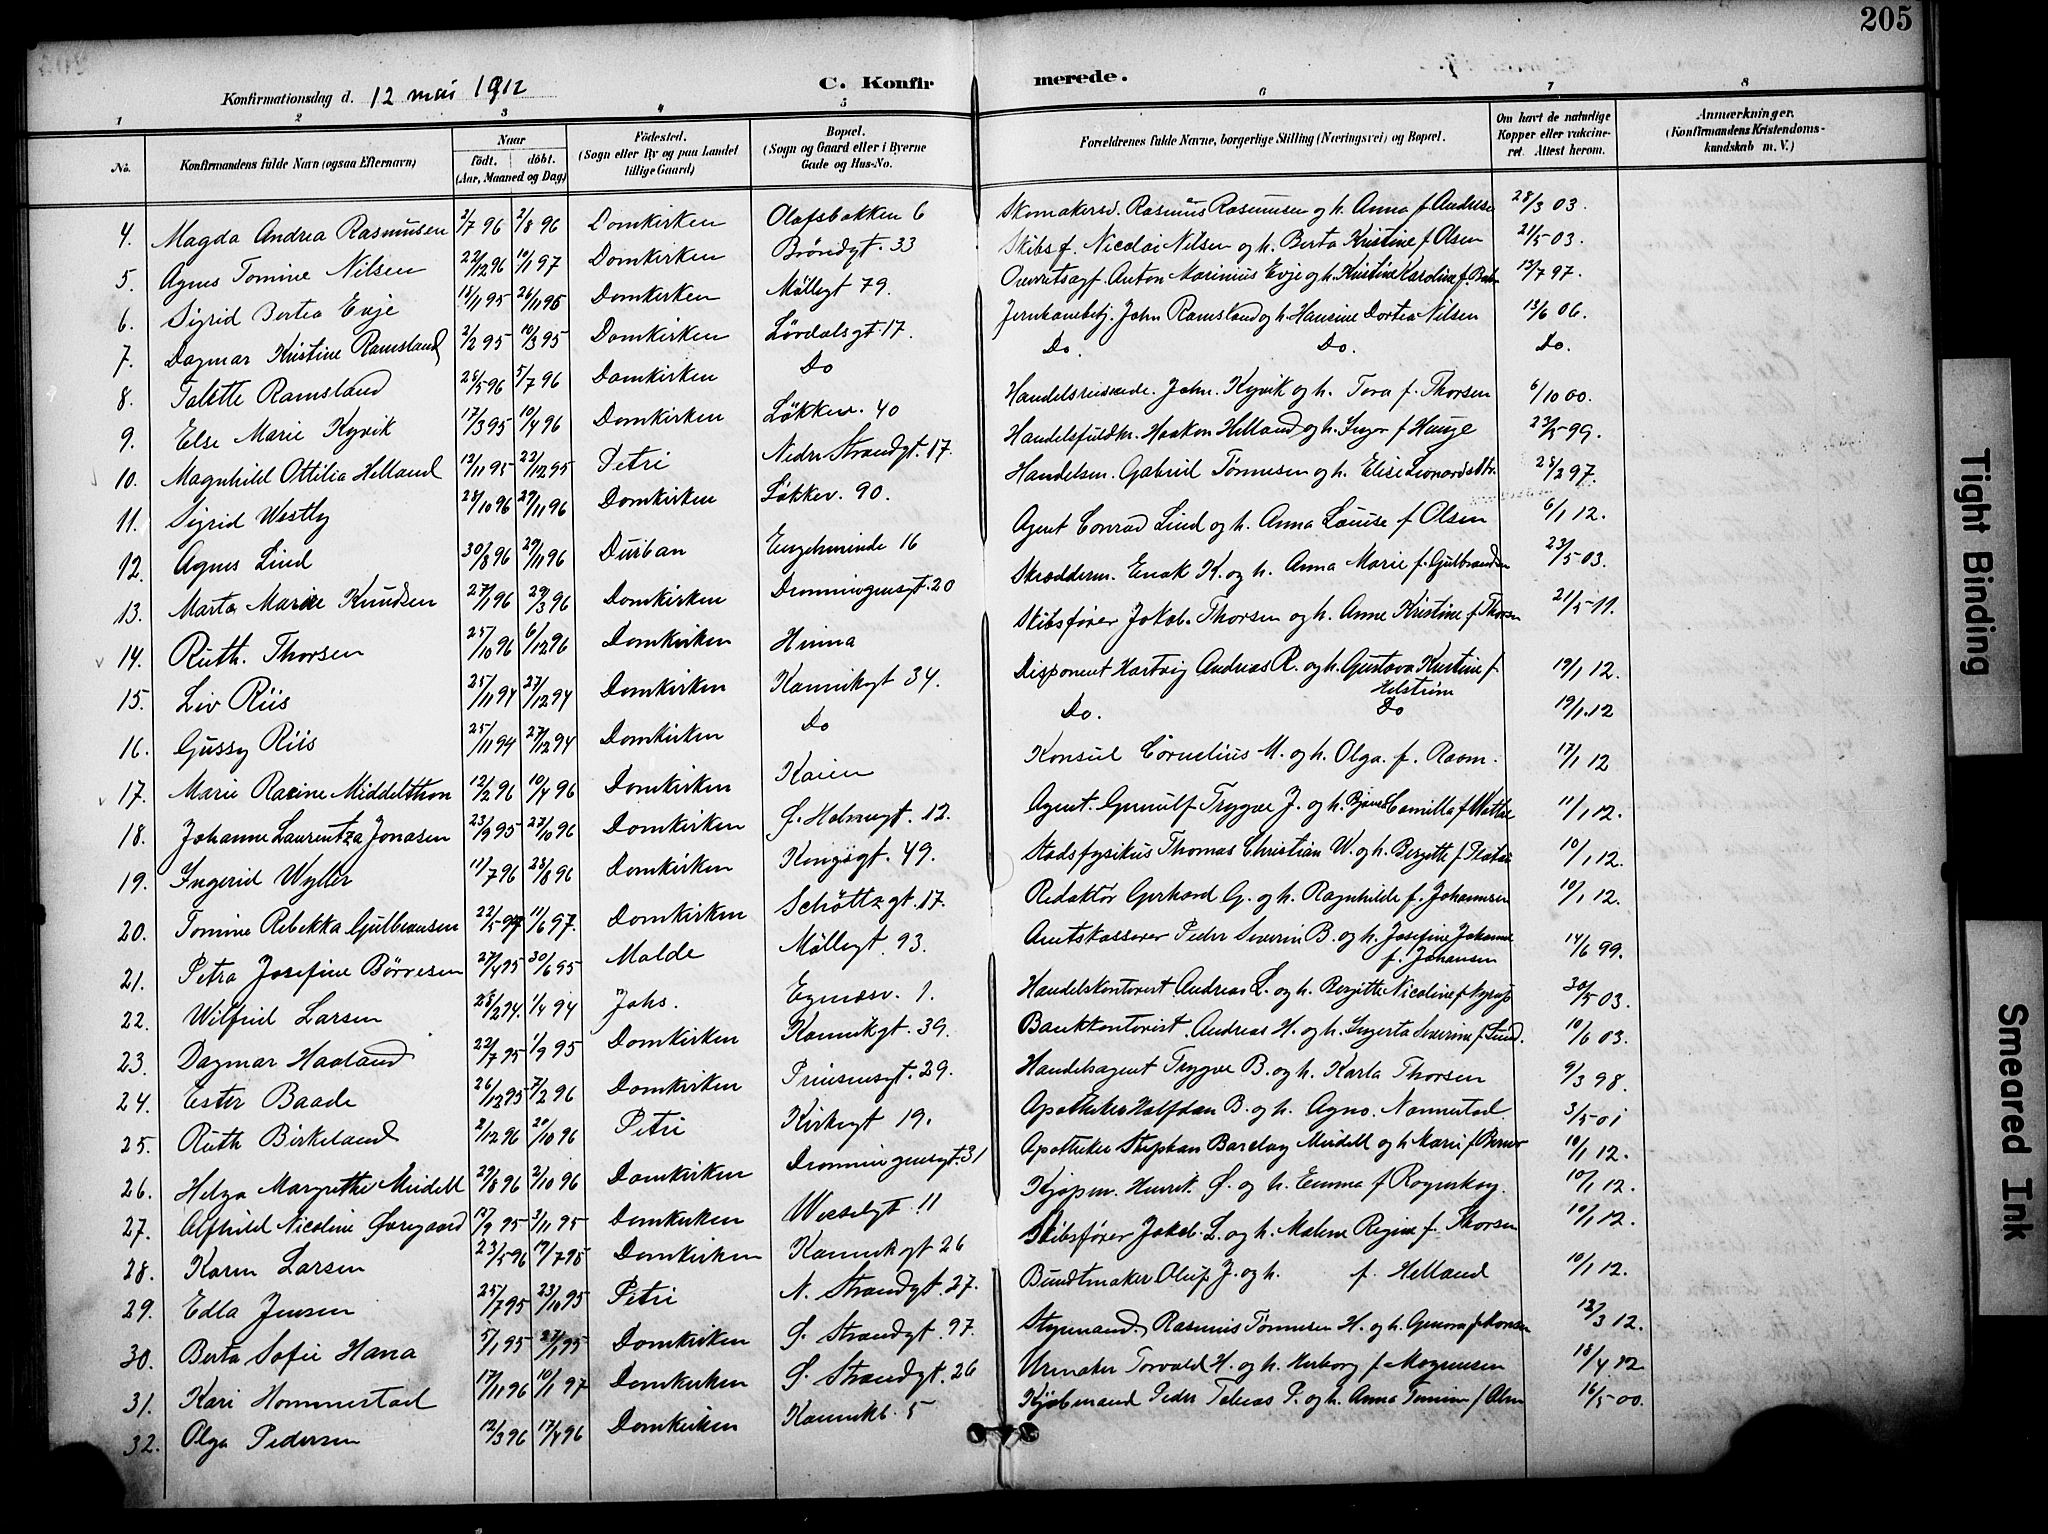 205
Konfirmationsdag d. 12 mai 1912 C. Konfirmerede.
1 2 3 4 5 6 7 8
No. Konfirmandens fulde Navn (ogsaa Efternavn) Naar født. døbt. (Aar, Maaned og Dag) Fødested. (Sogn eller By og paa Landet tillige Gaard) Bopæl. (Sogn og Gaard eller i Byerne Gade og Hus-No. Forældrenes fulde Navne, borgerlige Stilling (Næringsvei) og Bopæl. Om havt de naturlige Kopper eller vakcineret. Attest herom. Anmærkninger. (Konfirmandens Kristendomskundskab m. V.)
4. Magda Andrea Rasmussen 2/7 96 2/8 96 Domkirken Olafsbakken 6 Skomakersv. Rasmus Rasmussen og h. Anna f. Andersen 28/3 03.
5. Agnes Tomine Nilsen 22/12 96 10/1 97 Domkirken Brøndgt. 33 Skibsf. Nicolai Nilsen og h. Berta Kristine f. Olsen 21/5 03.
6. Sigrid Bertea Evje 18/11 95 26/11 95 Domkirken Møllegt 79. Overretssagf. Anton Marinius Evje og h. Kristine Karoline f. 13/7 97.
7. Dagmar Kristine Ramsland 2/2 95 10/3 95 Domkirken Løvdalsgt. 17. Jernbanebetj. John Ramsland og h. Hansine Dortea Nilsen 13/6 06.
8. Talette Ramsland 25/5 96 5/7 96 Domkirken Do Do. Do. Do.
9. Else Marie Kyvik 17/3 95 10/4 96 Domkirken Løkkev. 40 Handelsreisende. John. Kyvik og h. Tora f. Thorsen 6/10 00.
10. Magnhild Ottilia Helland 12/11 95 22/12 95 Petri Nedre Strandgt. 17. Handelsfuldm. Haakon Helland og h. Inger f Hauge 23/5 99.
11. Sigrid Westly 28/10 96 29/11 96 Domkirken Løkkev. 90. Handelsm. Gabriel Tønnesen og h. Elise Leonardsdtr. 25/2 97.
12. Agnes Lind 30/8 96 29/11 96 Durban Engelsminde 16 Agent Conrad Lind og h. Anna Louise f Olsen 6/1 12.
13. Marta Marie Knudsen 27/1 96 29/3 96 Domkirken Dronningensgt. 20 Skrædderm. Enok K. og h. Anna Marie f. Gulbrandsen 23/5 03.
14. Ruth. Thorsen 25/10 96 6/12 96 Domkirken Hinna Skibsfører Jakob. Thorsen og h. Anne Kristine f Thorsen 21/5 11.
15. Liv Riis 25/11 94 27/12 94 Domkirken Kannikgt 34. Disponent Hartvig Andreas R. og h. Gustava Kristine f. Helstrøm 19/1 12.
16. Gussy Riis 25/11 94 27/12 94 Domkirken Do Do. Do 19/1 12
17. Marie Racine Middelthon 12/2 96 10/4 96 Domkirken Kaien Konsul Cornelius M. og h. Olga. f. Racin. 17/1 12
18. Johanne Laurentza Jonasen 23/9 95 27/10 96 Domkirken Ø. Holmegt. 12. Agent. Gunulf Trygve J. og h. Camilla f. 11/1 12.
19. Ingerid Wyller 11/7 96 23/8 96 Domkirken Kongsgt. 49. Stadsfysikus Thomas Christian W. og h. Bergitte f. 10/1 12.
20. Tomine Rebekka Gulbransen 22/5 97 11/6 97. Domkirken Schøttzgt. 17. Redaktør Gerhard G. og h. Ragnhilde f. Johannesen 10/1 12.
21. Petra Josefine Børresen 27/4 95 30/6 95 Malde Møllegt. 93. Amtskasserer Peder Severin B. og h. Josefine Johanne f. Johansen 14/6 99.
22. Wilfrid Larsen 28/2 94. 1/4 94 Johs. Egnæsv. 1. Handelskontorist Andreas L. og h. Bergitte Nicoline f. 30/5 03.
23. Dagmar Haaland 22/7 95 1/9 95 Domkirken Kannikgt. 39. Bankkontorist. Andreas H. og h. Ingerta Severine f. Lund. 10/6 03.
24. Ester Baade 26/12 95 7/2 96 Domkirken Prinsensgt. 29. Handelsagent Trygve B. og h. Karla Thorsen 9/3 98.
25. Ruth Birkeland 2/12 96 20/10 96 Petri Kirkegt 19. Apotheker Halfdan B. og h. Agno. Nannestad. 3/5 01
26. Helga Margrethe Meidell 29/8 96 2/10 96 Domkirken Dronningensgt. 31 Apotheker Stephan Barclay Meidell og h. Marie f. 10/1 12.
27. Alfhild Nicoline Øvregaard 17/9 95 3/11 95 Domkirken Wesselgt. 11 Kjøpm. Henrik Ø. og h. Emma f 10/1 12.
28. Karen Larsen 23/5 96 19/7 95 Domkirken Kannikgt 26 Skibsfører Jakob. L. og h. Malene Regine f. Thorsen 10/1 12.
29. Edla Jensen 25/7 95 23/10 95 Petri N. Strandgt. 27. Bundtmaker Oluf J. og h. f. Helland 10/1 12.
30. Berta Sofie Hana 5/1 95 27/1 95 Domkirken Ø. Strandgt. 97. Styrmand. Rasmus Tønnesen H. og h. 12/3 12.
31. Kari Hommestad 17/11 96 10/1 97 Domkirken Ø. Strandgt. 26 Urmaker Torvald H. og h. Herborg f. Mogensen 18/4 12
32. Olga Pedersen 12/3 96 17/4 96 Domkirken Kannikb. 5 Kjøbmand Peder Tobias P. og h. Anna Tomine f. 16/5 00.
Tight Binding
Smeared Ink